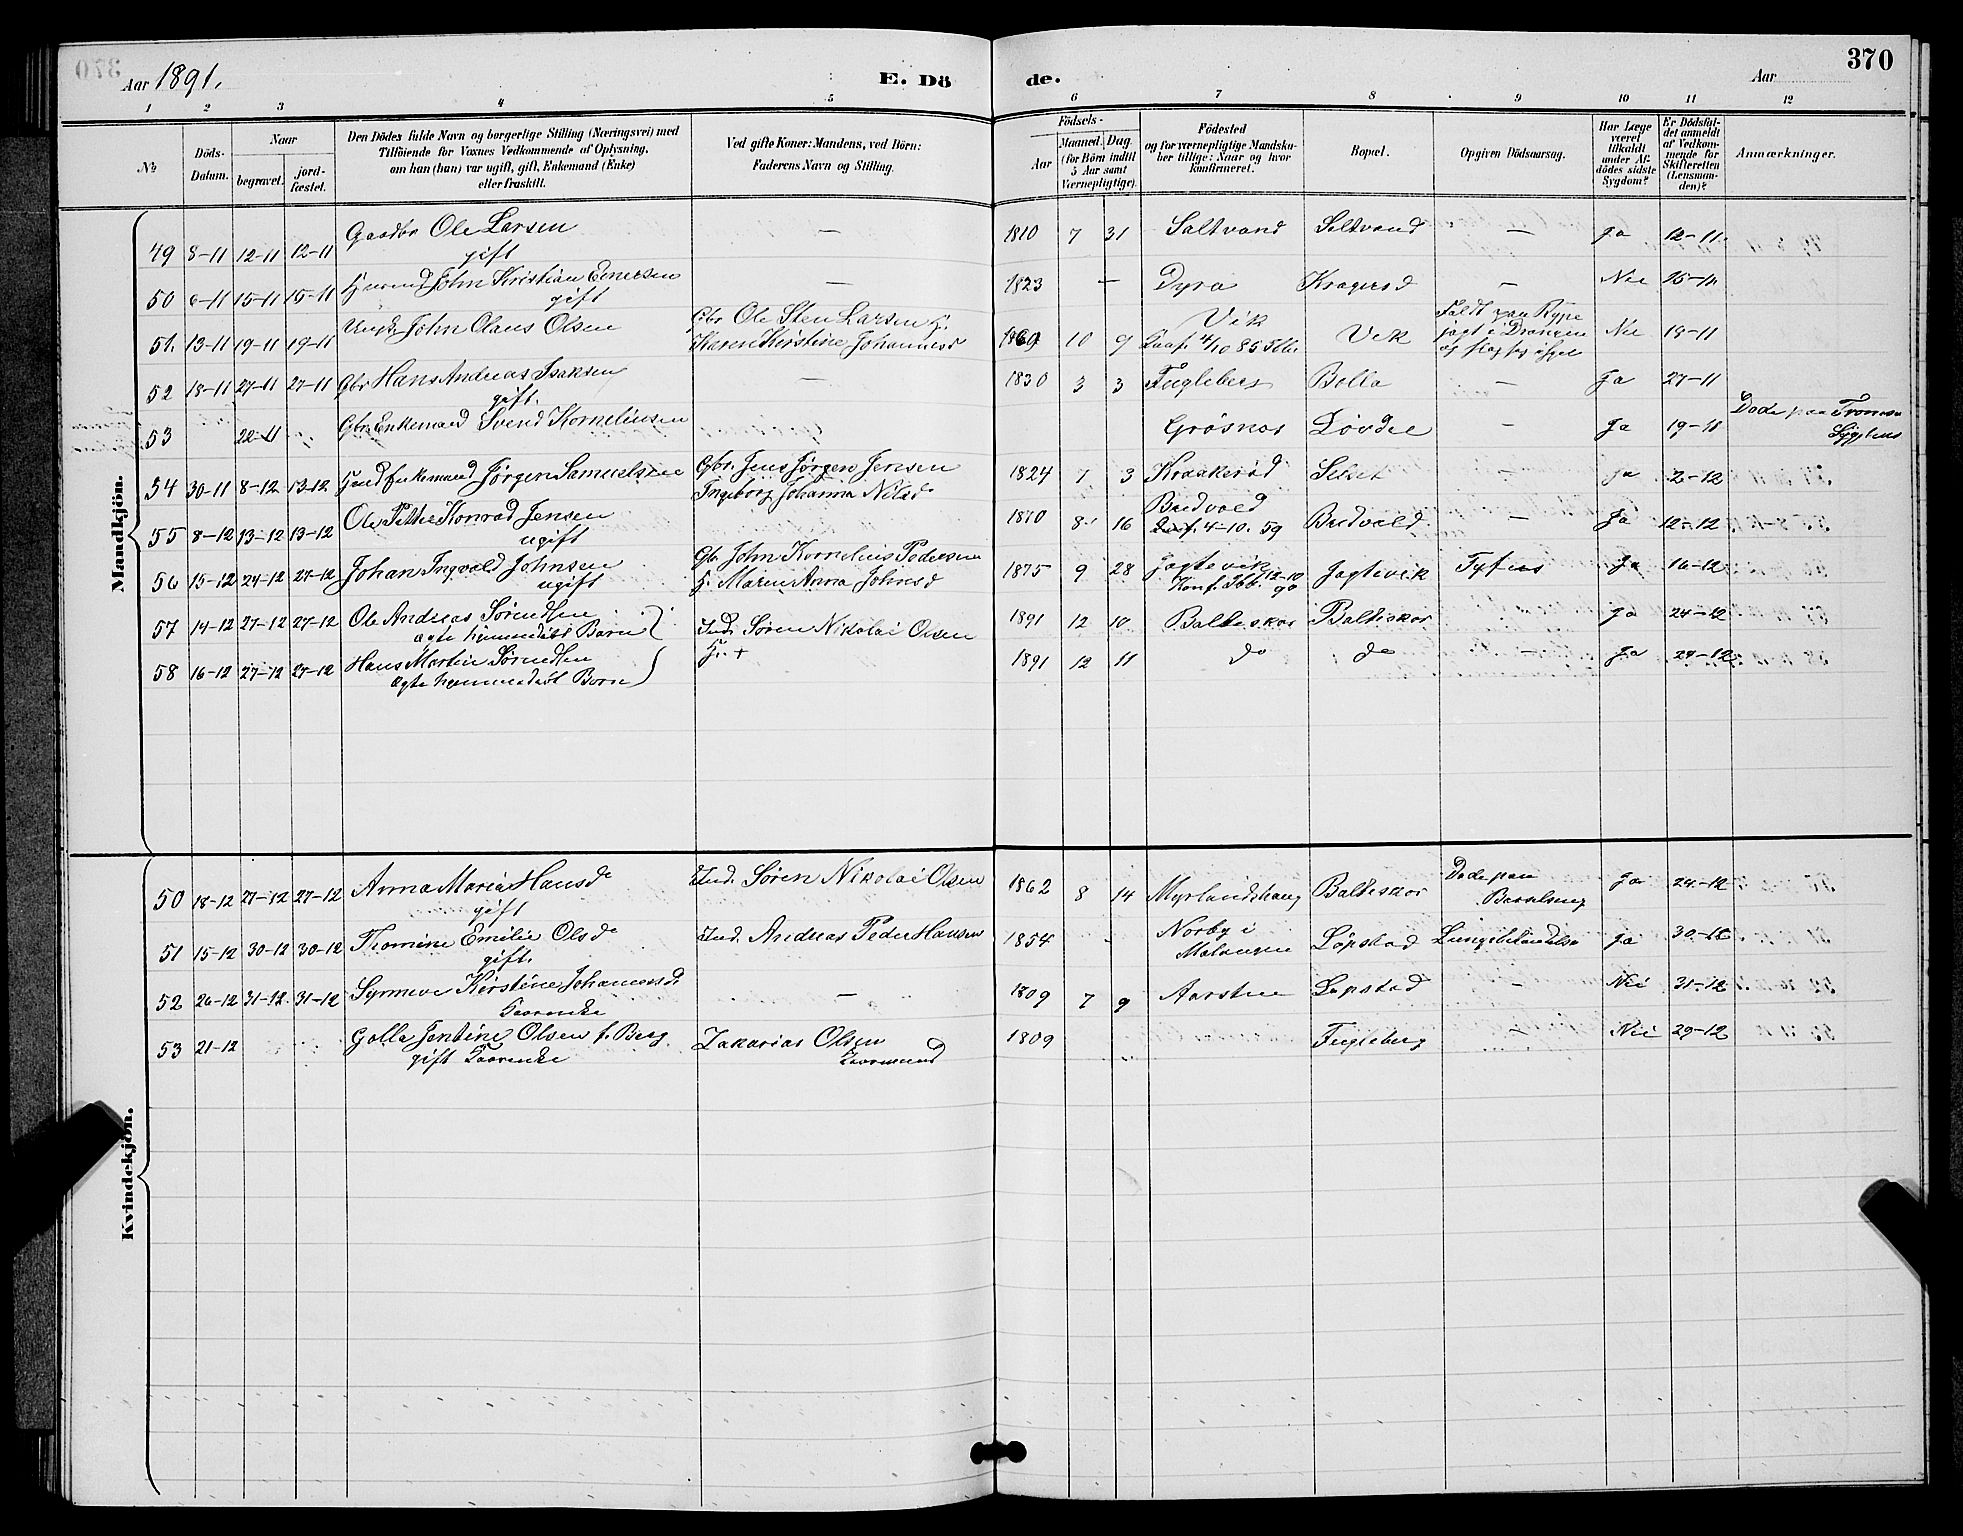 370
Aar 1891.
E. Dö de.
Aar
1 2 3 4 5 6 7 8 9 10 11 12
No
Döds-Datum.
Naar
begravet.
jord-fæstet.
Den Dödes fulde Navn og borgerlige Stilling (Næringsvei) med
Tilföiende for Voxnes Vedkommende af Oplysning,
om han (hun) var ugift, gift, Enkemand (Enke)
eller fraskilt.
Ved gifte Koner: Mandens, ved Börn:
Faderens Navn og Stilling.
Födsels-
Aar
Maaned. Dag.
(for Börn indtil
5 Aar samt
Værnepligtige).
Födested
og for værnepligtige Mandska-
ber tillige: Naar og hvor
konfirmeret.
Bopæl.
Opgiven Dödsaarsag.
Har Læge
været
tilkaldt
under Af-
dödes sidste
Sygdom?
Er Dödsfal-
det anmeldt
af Vedkom-
mende for
Skifteretten
(Lensman-
den)?
Anmærkninger.
Mandkjön.
49 8-11 12-11 12-11 Gaardbr Ole Larsen gift — 1810 7 31 Saltvand Saltvand — Ja 12-11
50 6-11 15-11 15-11 John Kristian Enersen gift — 1823 — Dyrø Kragerød — Nei 15-11
51. 13-11 19-11 19-11 Ungk. John Olaus Olsen Gbr Ole Sten Larsen H. Karen Kirstine Johannesd 1869 10 9 Vik 4/10 85 Vik Faldt paa Rype jagt i Nei 18-11
52 18-11 27-11 27-11 Gbr Hans Andreas Isaksen gift. — 1830 3 3 Fugleberg Bolla — Ja 27-11
53 22-11 Gbr. Enkemand Svend Kornelinsen Grøsnes Løvdal — Ja 19-11 Døde paa Tromsø Sygehus
54 30-11 8-12 13-12 Enkemand Jørgen Samuelsen Gbr. Jens Jørgen Jensen Ingeborg Johanna Nilsd 1824 7 3 Kraakerød Selset — Ja 2-12
55 8-12 13-12 13-12 Ole Petter Konrad Jensen ugift 1870 8 16 Bredvold 4-10. 59 Bredvold — Ja 12-12
56 15-12 24-12 27-12 Johan Ingvald Johnsen ugift Gb John Kornelius Pedersen H. Maren Anna Johnsd 1875 9 28 Jagtevik Konf. Ibb. 12-10 90 Jagtevik Tyfus Ja 16-12
57 14-12 27-12 27-12 Ole Andreas Sørensen ægte hjemmedøbt Barn Ind. Søren Nikolai Olsen 1891 12 10 Balteskar Balteskar Ja 24-12
58 16-12 27-12 27-12 Hans Martin Sørensen ægte hjemmedøbt Barn H. + 1891 12 11 do do — Ja 24-12
Kvindekjön.
50 18-12 27-12 27-12 Anna Maria Hansd gift Ind. Søren Nikolai Olsen 1862 8 14 Myrlandshaug Balteskar Døde paa Barselseng Ja 24-12
51 15-12 30-12 30-12 Thomine Emilie Olsd gift. Ind. Andreas Peder Hansen 1854 Norby i Malangen Løpstad Lungebetændelse Ja 30-12
52 26-12 31-12 31-12 Synneve Kirstine Johannesd — 1809 7 9 Aarsten Løpstad — Nei 31-12
53 21-12 Golla Jentine Olsen f. Berg gift Zakarias Olsen 1809 Fugleberg — Nei 29-12